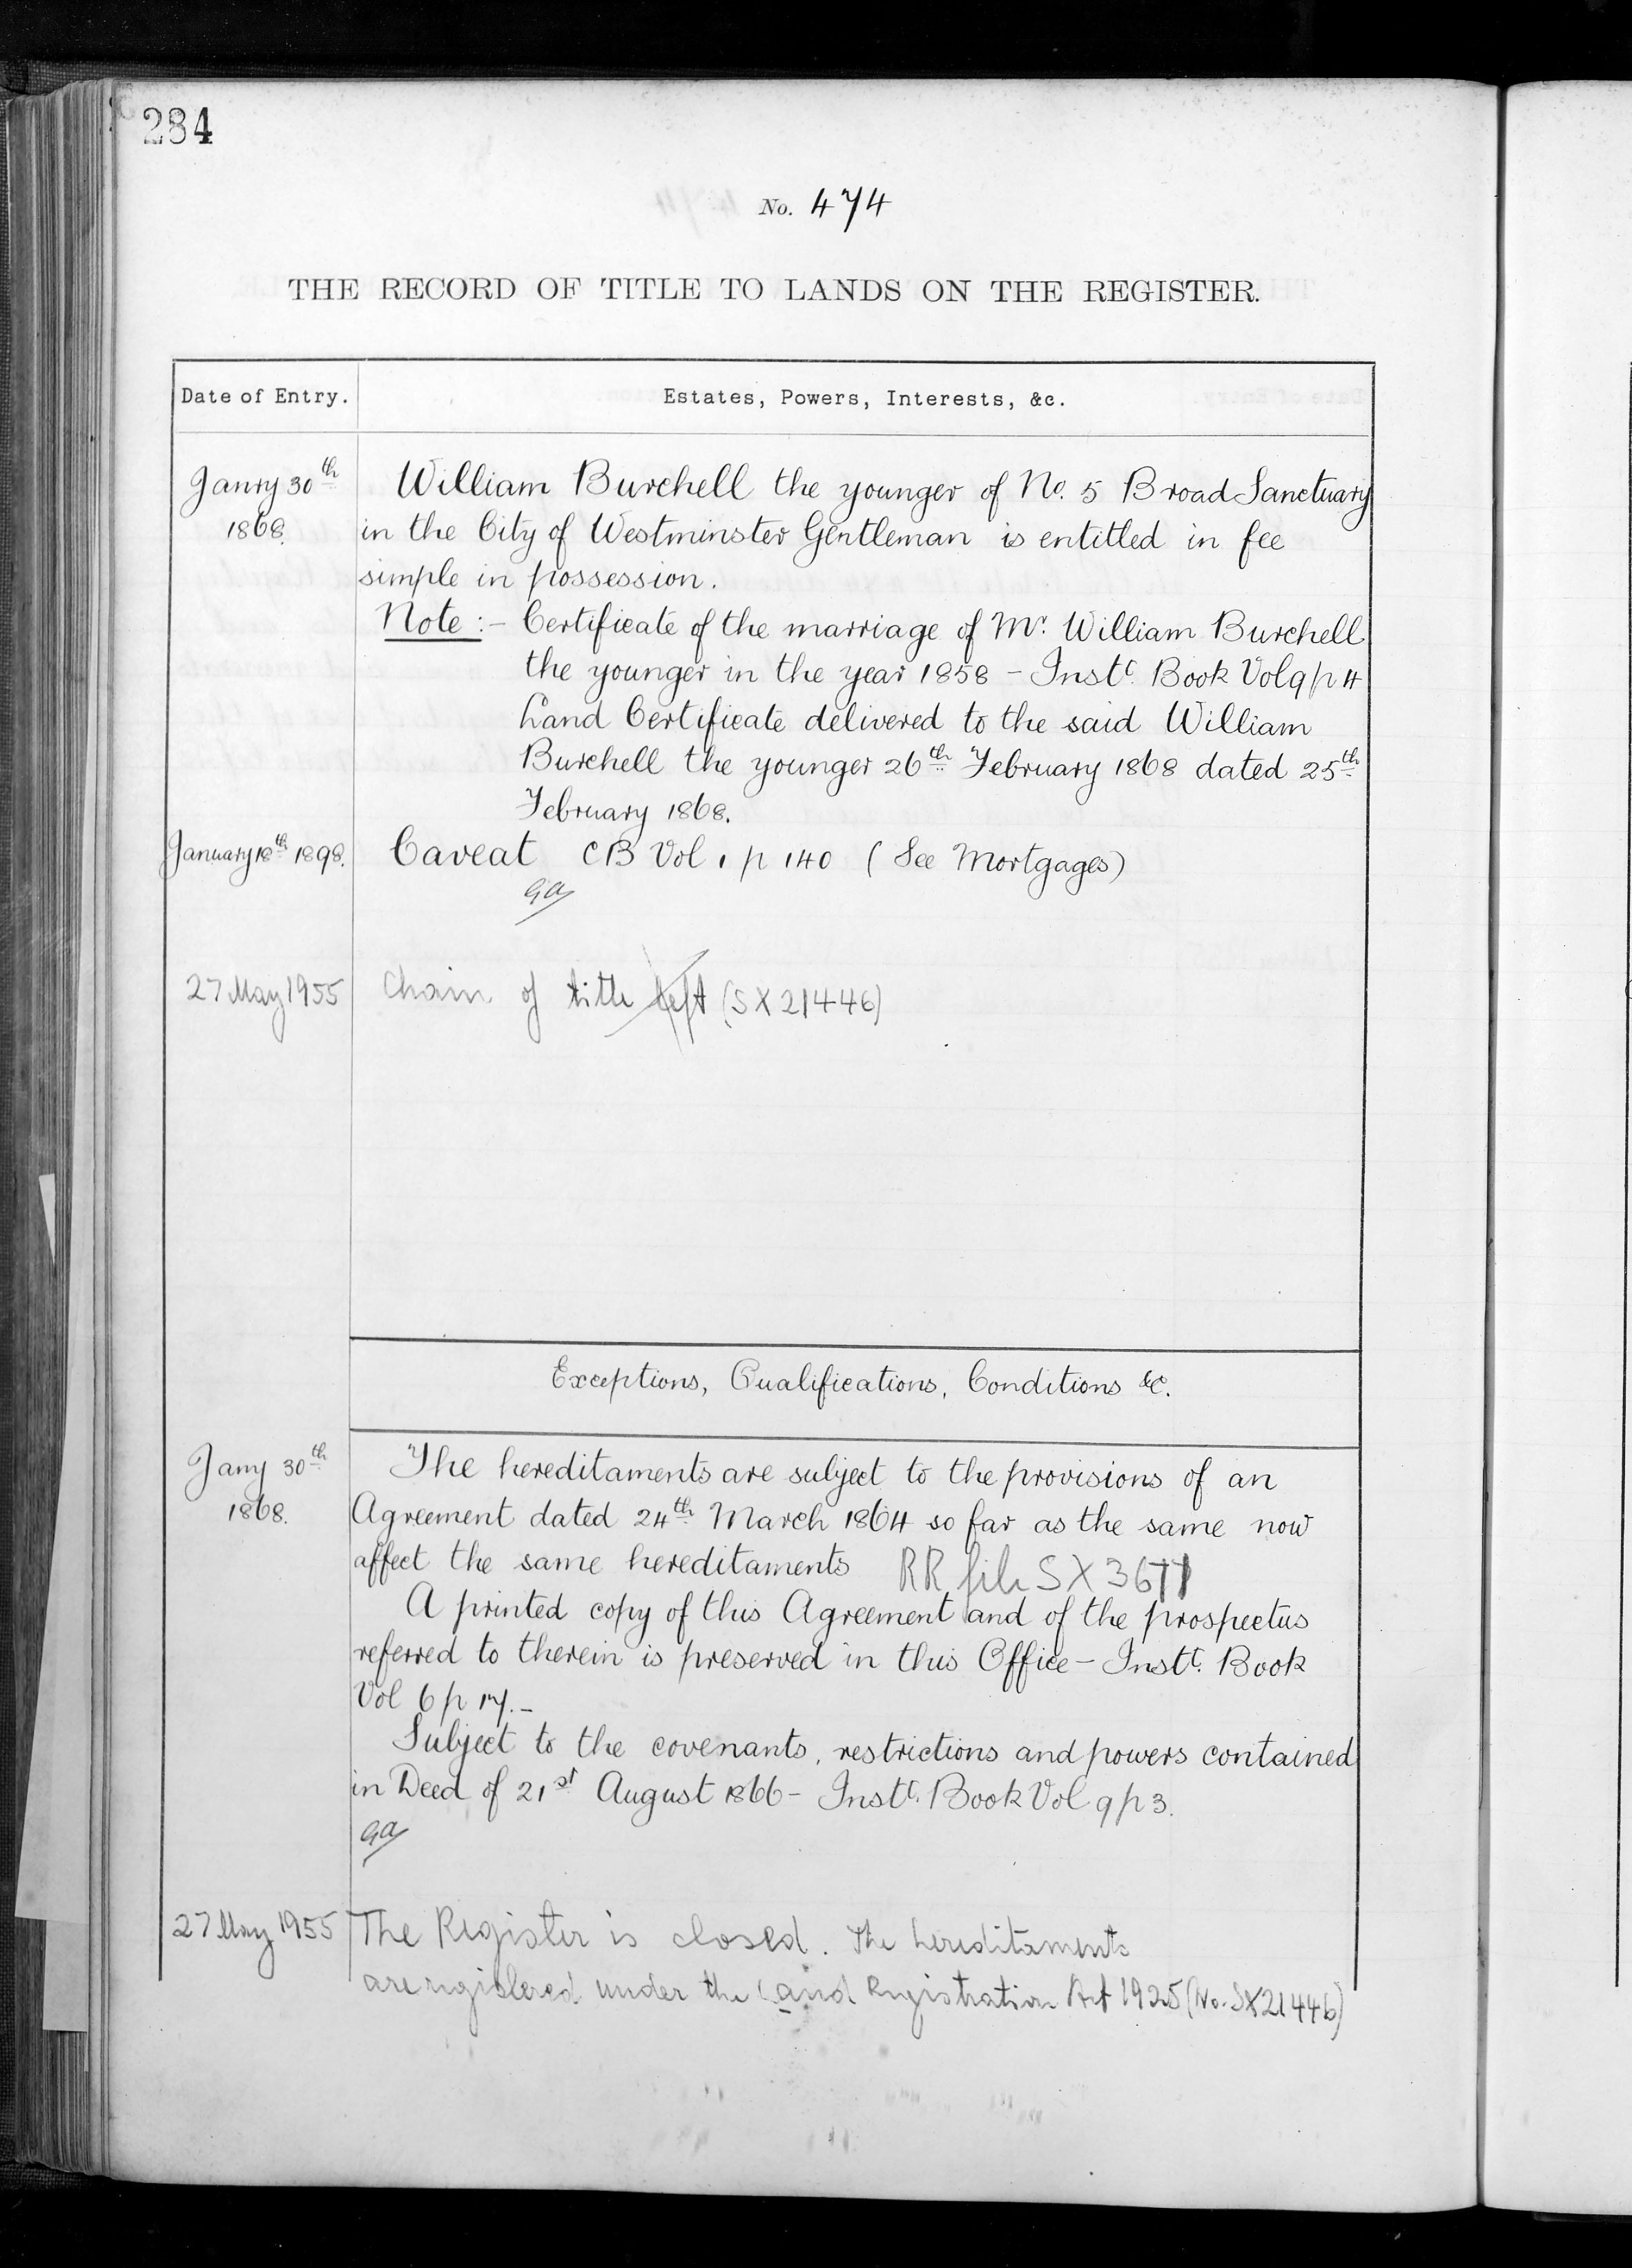 284
No. 474
THE RECORD OF TITLE TO LANDS ON THE REGISTER.
Date of Entry.
Estates, Powers, Interests, &c.
Janry 30th
1868.
William Burchell the younger of No. 5 Broad Sanctuary
in the City of Westminster Gentleman is entitled in fee
simple in possession.
Note:- Certificate of the marriage of Mr. William Burchell
the younger in the year 1858 - Instt. Book Vol 9 p 4
Land Certificate delivered to the said William
Burchell the younger 26th February 1868 dated 25th
February 1868.
January 18th 1898.
Caveat CB Vol 1 p 140 (See Mortgages)
27 May 1955
Chain of title left (SX21446)
Exceptions, Qualifications, Conditions &c.
Jany 30th
1868.
The hereditaments are subject to the provisions of an
Agreement dated 24th March 1864 so far as the same now
affect the same hereditaments RR file SX3671
A printed copy of this Agreement and of the prospectus
referred to therein is preserved in this Office - Instt. Book
Vol 6 p 17.-
Subject to the covenants, restrictions and powers contained
in Deed of 21st August 1866 - Instt. Book Vol 9 p 3.
27 May 1955
The Register is closed. The hereditaments
are registered under the Land Registration Act 1925 (No. SX21446)